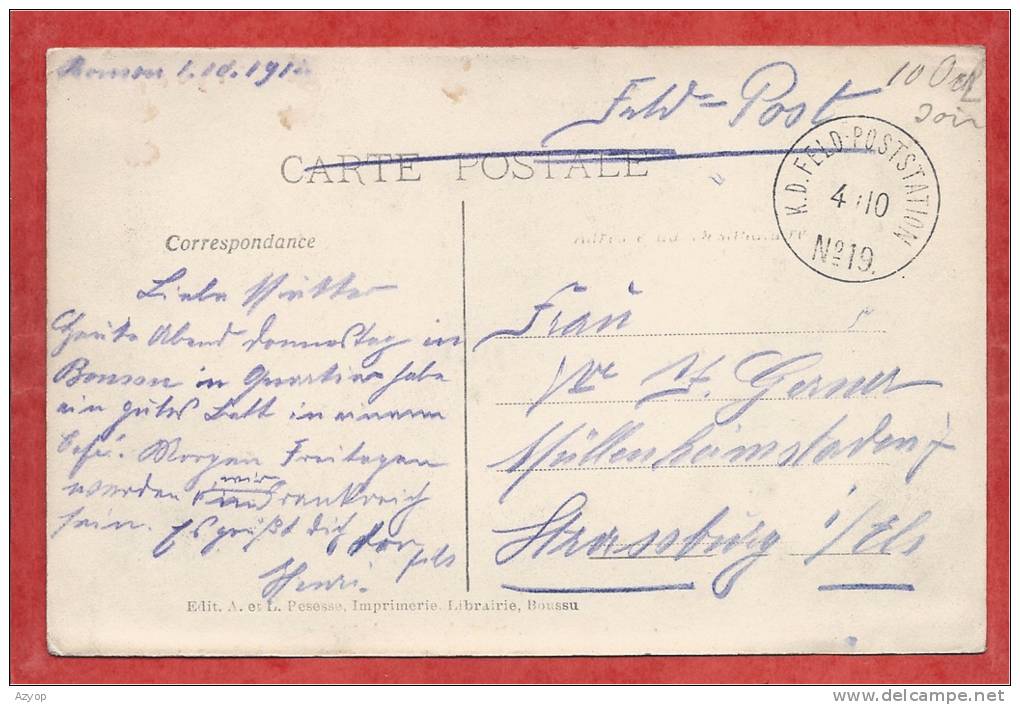 1.10.191
10 Oct
Feld=Post
CARTE POSTALE
K.D.FELD-POSTSTATION
4 10
No 19.
Correspondance
Liebe Mutter
Heute Abend Donnerstag in
in Quartier habe
ein gutes Bett in einem
Café. Morgen Freitag
werden wir in Frankreich
sein. Es grüßt dich
Dein fils
Henri.
Frau
Gerner
Müllenheimstaden 7
Strassburg i/Els
Edit. A. et L. Pesesse, Imprimerie, Librairie, Boussu
Azyop
www.delcampe.net